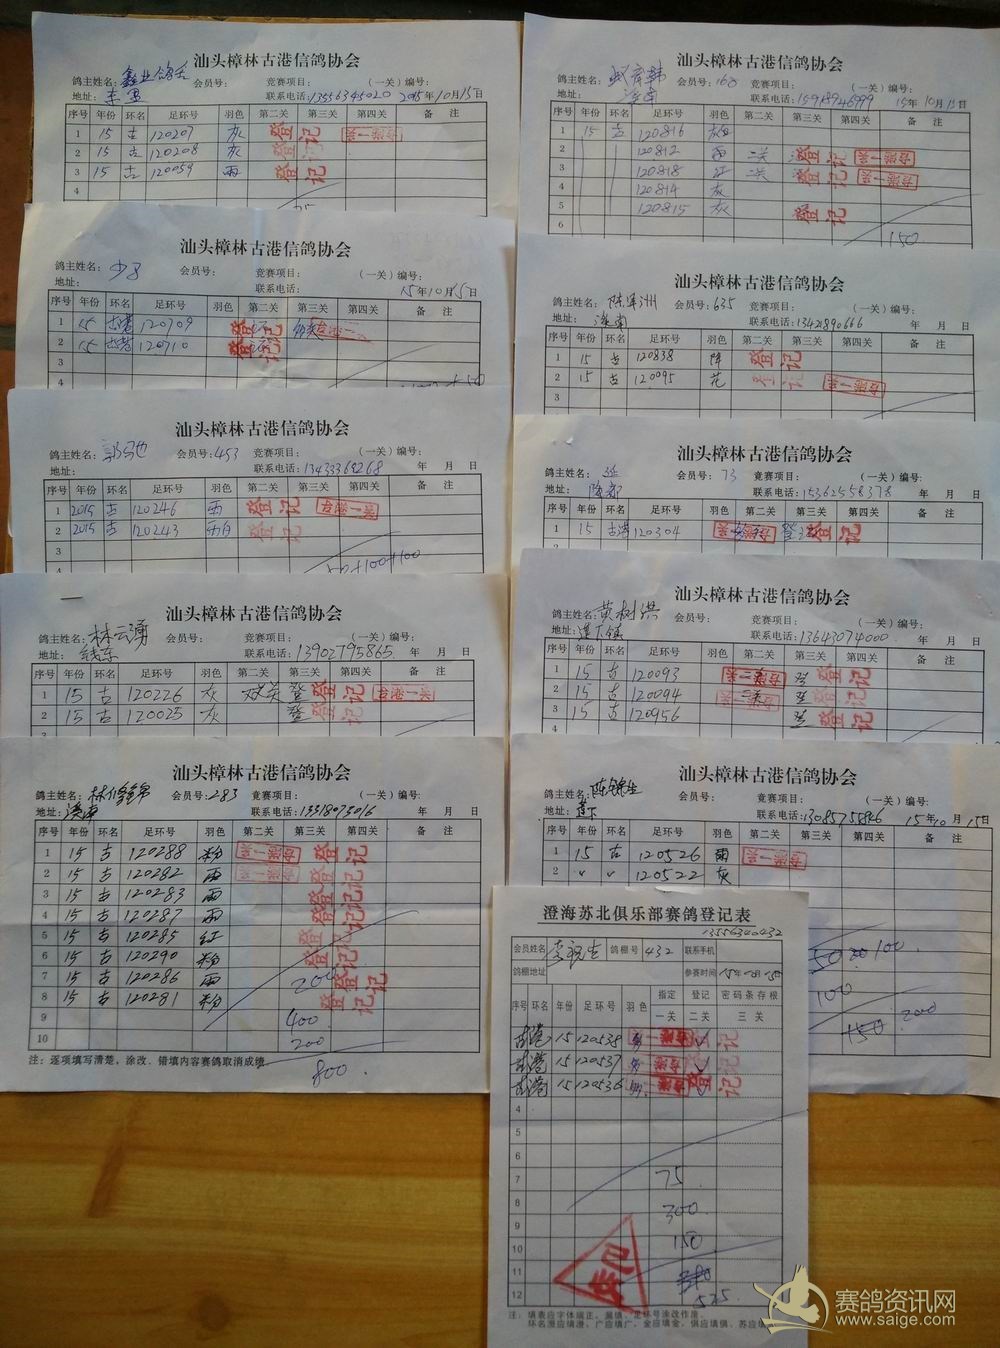 汕头樟林古港信鸽协会
鸽主姓名: 鑫业鸽舍 会员号: 竞赛项目: (一关)编号:
地址: 联系电话:13556345020 2015年10月15日
序号 年份 环名 足环号 羽色 第二关 第三关 第四关 备 注
1 15 古 120207 灰 登记
2 15 古 120208 灰 登记
3 15 古 120059 雨 登记
4
汕头樟林古港信鸽协会
鸽主姓名: 会员号: 竞赛项目: (一关)编号:
地址: 联系电话: 15年10月15日
序号 年份 环名 足环号 羽色 第二关 第三关 第四关 备 注
1 15 古港 120709 登记
2 15 古港 120710 登记
3
4
汕头樟林古港信鸽协会
鸽主姓名: 会员号:453 竞赛项目: (一关)编号:
地址: 联系电话:13433369268 年 月 日
序号 年份 环名 足环号 羽色 第二关 第三关 第四关 备 注
1 2015 古 120246 雨 登记
2 2015 古 120243 雨白 登记
3
4 50+100+100
汕头樟林古港信鸽协会
鸽主姓名: 林云涌 会员号: 竞赛项目: (一关)编号:
地址: 钱东 联系电话:13902795865 年 月 日
序号 年份 环名 足环号 羽色 第二关 第三关 第四关 备 注
1 15 古 120226 灰 双关 登 登记
2 15 古 120025 灰 登 登记
汕头樟林古港信鸽协会
鸽主姓名: 会员号:283 竞赛项目: (一关)编号:
地址: 溪南 联系电话:13318073016 年 月 日
序号 年份 环名 足环号 羽色 第二关 第三关 第四关 备 注
1 15 古 120288 粉 登记
2 15 古 120282 雨 登记
3 15 古 120283 雨 登记
4 15 古 120287 雨 登记
5 15 古 120285 红 登记
6 15 古 120290 粉 登记
7 15 古 120286 雨 200 登记
8 15 古 120281 粉 登记
9 400
10 200
注: 逐项填写清楚, 涂改、错填内容赛鸽取消成绩
800
汕头樟林古港信鸽协会
鸽主姓名: 会员号:168 竞赛项目: (一关)编号:
地址: 溪南 联系电话:15918946999 15年10月15日
序号 年份 环名 足环号 羽色 第二关 第三关 第四关 备 注
1 15 古 120816
2 120812 雨 二关 登记
3 120818 红 二关 登记
4 120814 灰
5 120815 灰 登记
6 150
汕头樟林古港信鸽协会
鸽主姓名: 陈军洲 会员号:635 竞赛项目: (一关)编号:
地址: 溪南 联系电话:13421890666 年 月 日
序号 年份 环名 足环号 羽色 第二关 第三关 第四关 备 注
1 15 古 120838 登记
2 15 古 120095 花 登记
3
汕头樟林古港信鸽协会
鸽主姓名: 会员号:73 竞赛项目: (一关)编号:
地址: 联系电话:15362558378 年 月 日
序号 年份 环名 足环号 羽色 第二关 第三关 第四关 备 注
1 15 古港 120304 登记
汕头樟林古港信鸽协会
鸽主姓名: 黄树洪 会员号: 竞赛项目: (一关)编号:
地址: 莲下镇 联系电话:13643074000 年 月 日
序号 年份 环名 足环号 羽色 第二关 第三关 第四关 备 注
1 15 古 120093 登 登记
2 15 古 120094 登 登记
3 15 古 120956 登 登记
汕头樟林古港信鸽协会
鸽主姓名: 陈锦生 会员号: 竞赛项目: (一关)编号:
地址: 莲下 联系电话:13085758846 15年10月15日
序号 年份 环名 足环号 羽色 第二关 第三关 第四关 备 注
1 15 古 120526 雨
2 〃 〃 120522 灰
100
100
150 200
澄海苏北俱乐部赛鸽登记表
13556340432
会员姓名 鸽棚号 432 联系手机
鸽棚地址 参赛时间
序号 环名 年份 足环号 羽色 指定 登记 密码条存根
一关 二关 三关
古港 15 120538 登记
古港 15 120537 登记
古港 15 120536 登记
4
5
6
7 75
8 300
9
10 150
11
12 525
注: 填表应字体端正, 漏填、足环号涂改作废
环名澄应填澄、广应填广, 金应填金、俱应填俱、苏应填
赛鸽资讯网
www.saige.com